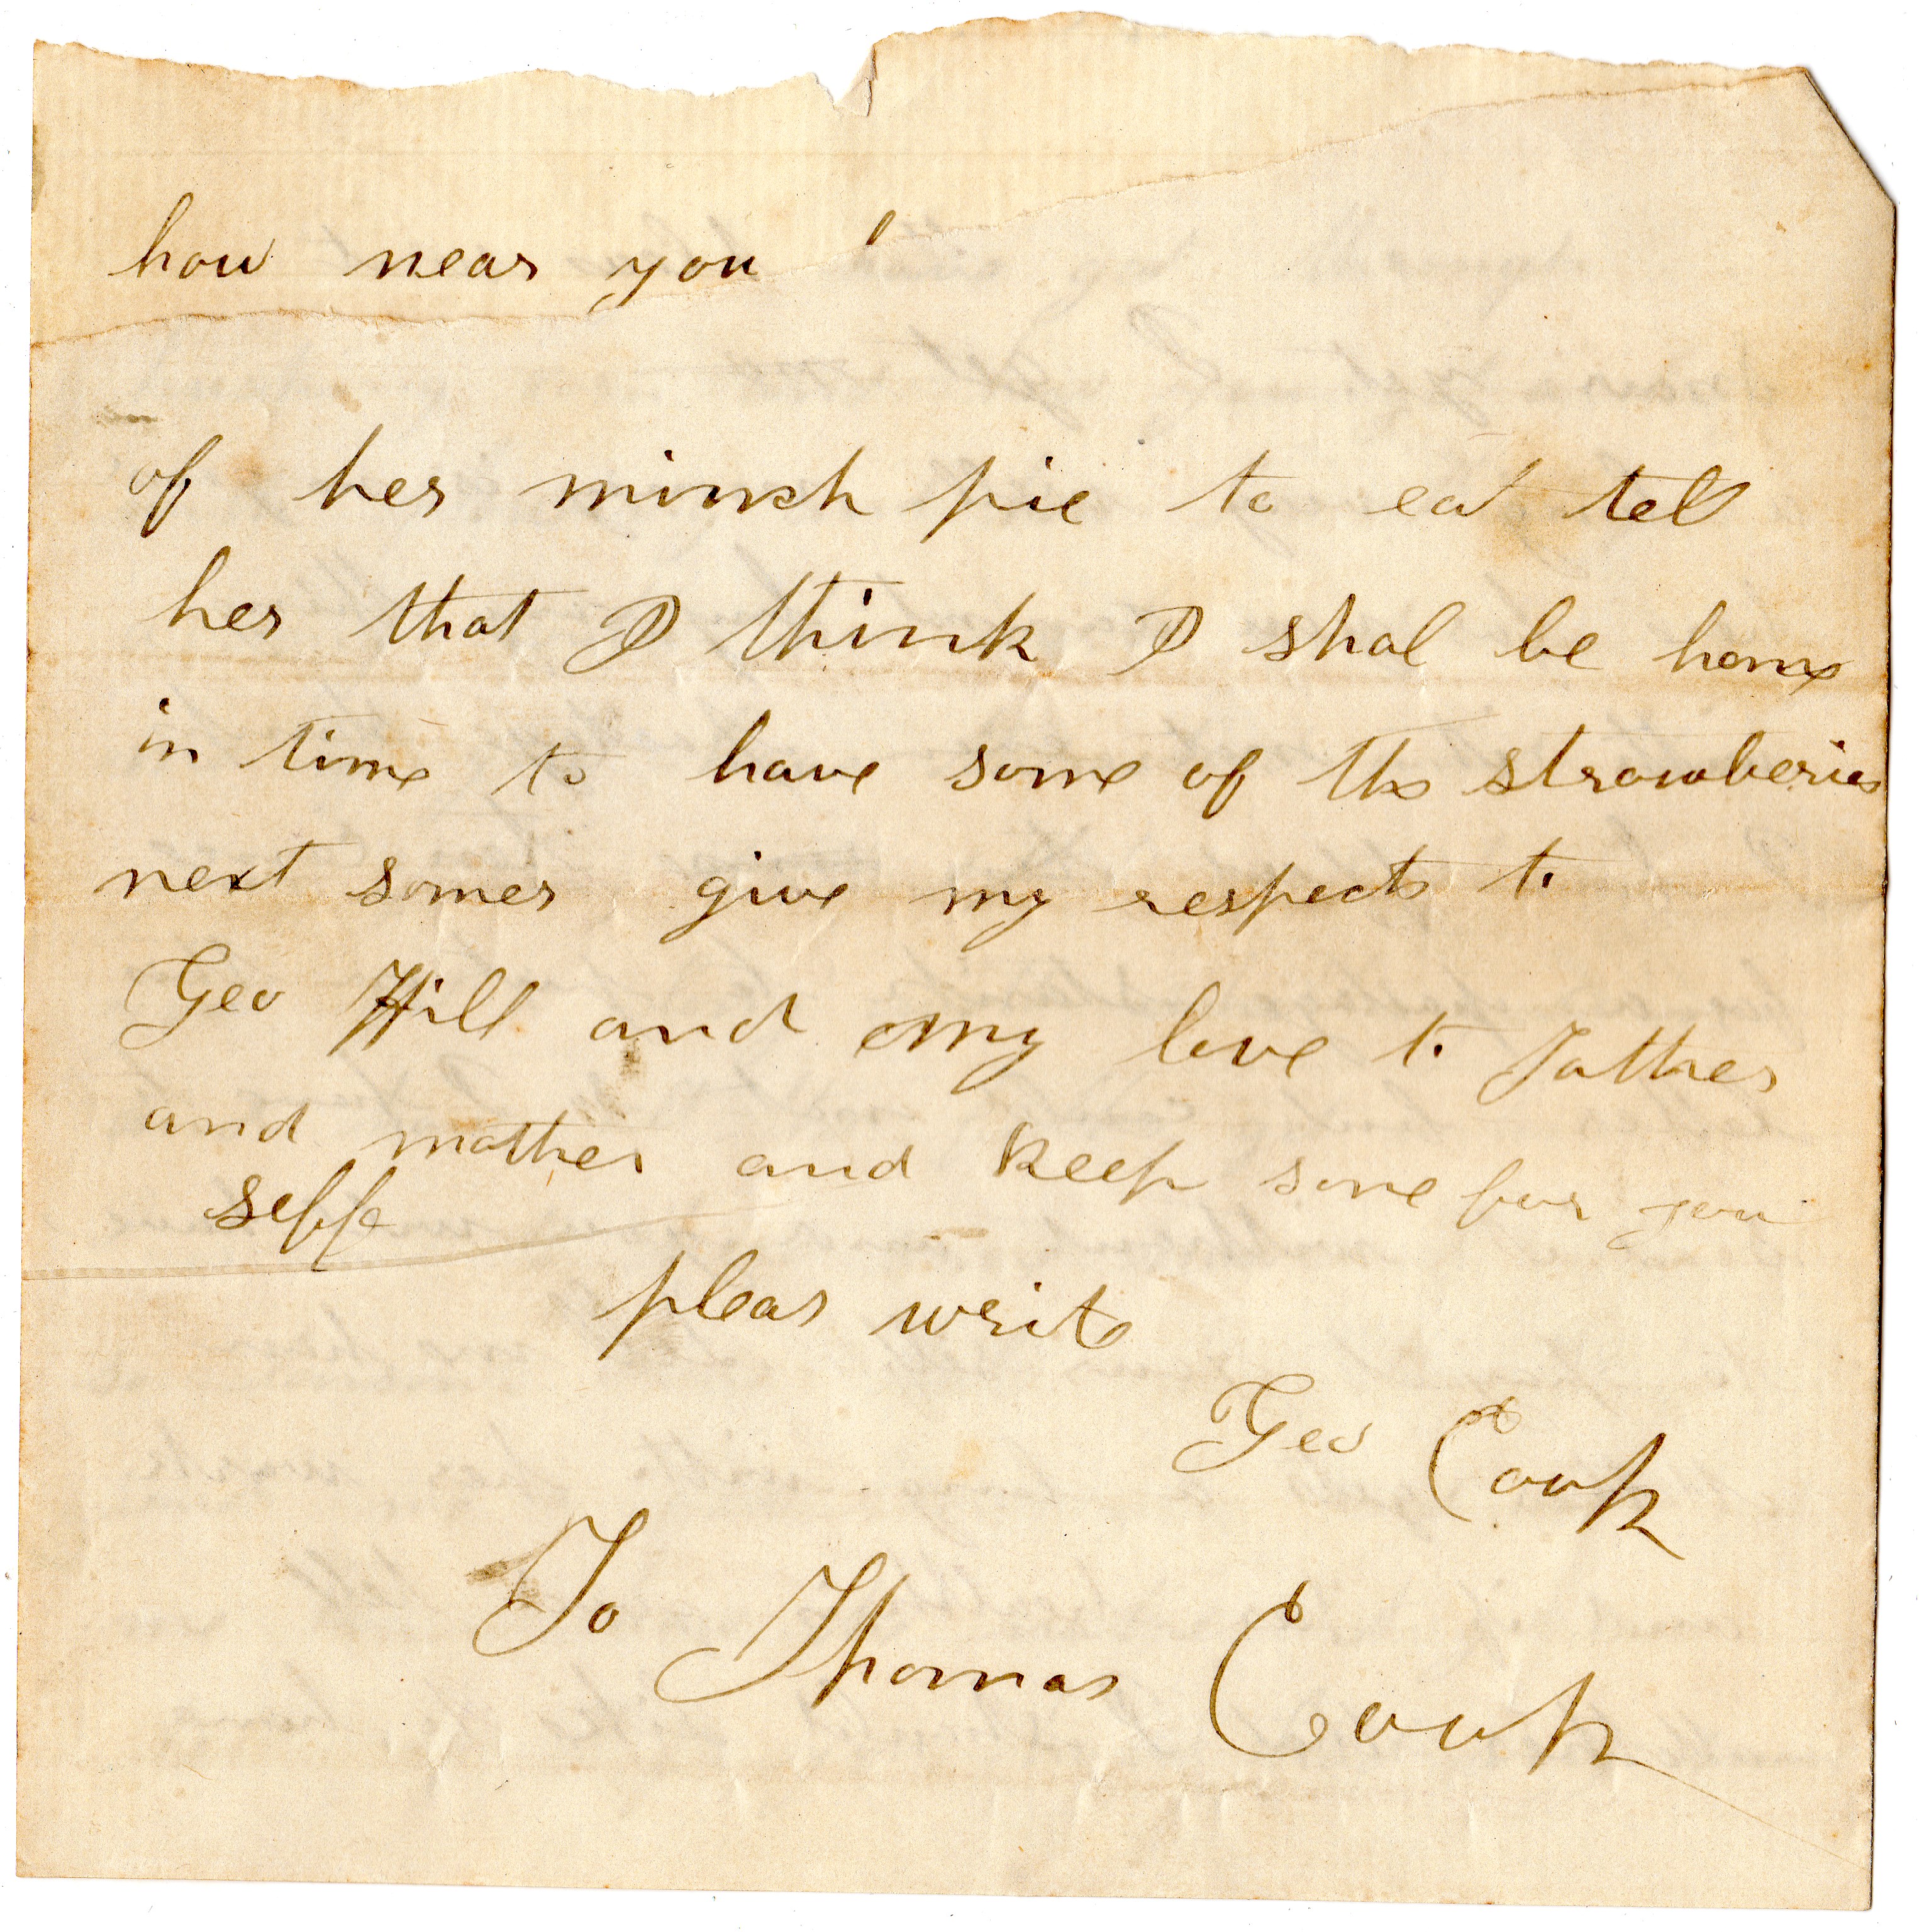 how near you
of her minch pie to eat tell
her that I think I shal be home
in time to have some of the strawberies
next somer give my respects to
Geo Hill and my love to Father
and mother and keep some for you
selfe
pleas write
Geo Cook
To Thomas Cook